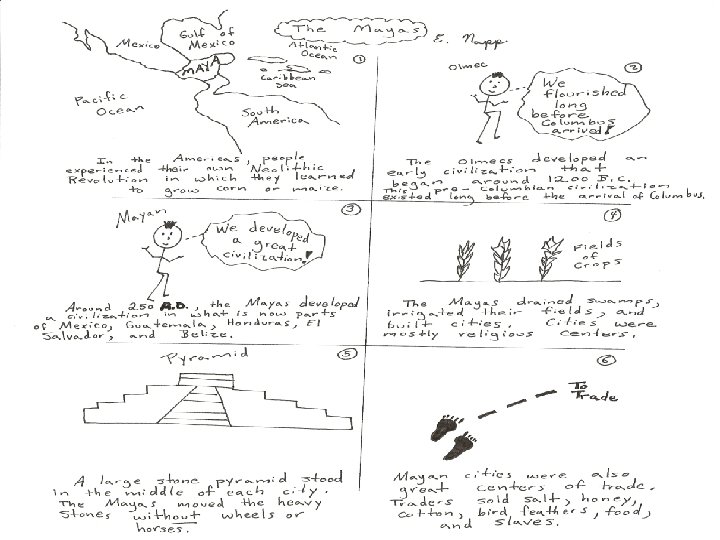 The Mayas
E. Napp
Mexico
Gulf of
Mexico
Atlantic
Ocean
①
MAYA
Caribbean
Sea
Pacific
Ocean
South
America
In the Americas, people
experienced their own Neolithic
Revolution in which they learned
to grow corn or maize.
②
Olmec
We
flourished
long
before
Columbus
arrived!
The Olmecs developed an
early civilization that
began around 1200 B.C.
This pre-Columbian civilization
existed long before the arrival of Columbus.
③
Mayan
We developed
a great
civilization!
Around 250 A.D., the Mayas developed
a civilization in what is now parts
of Mexico, Guatemala, Honduras, El
Salvador, and Belize.
④
Fields
of
Crops
The Mayas drained swamps,
irrigated their fields, and
built cities. Cities were
mostly religious centers.
⑤
Pyramid
A large stone pyramid stood
in the middle of each city.
The Mayas moved the heavy
stones without wheels or
horses.
⑥
To
Trade
Mayan cities were also
great centers of trade.
Traders sold salt, honey,
cotton, bird feathers, food,
and slaves.